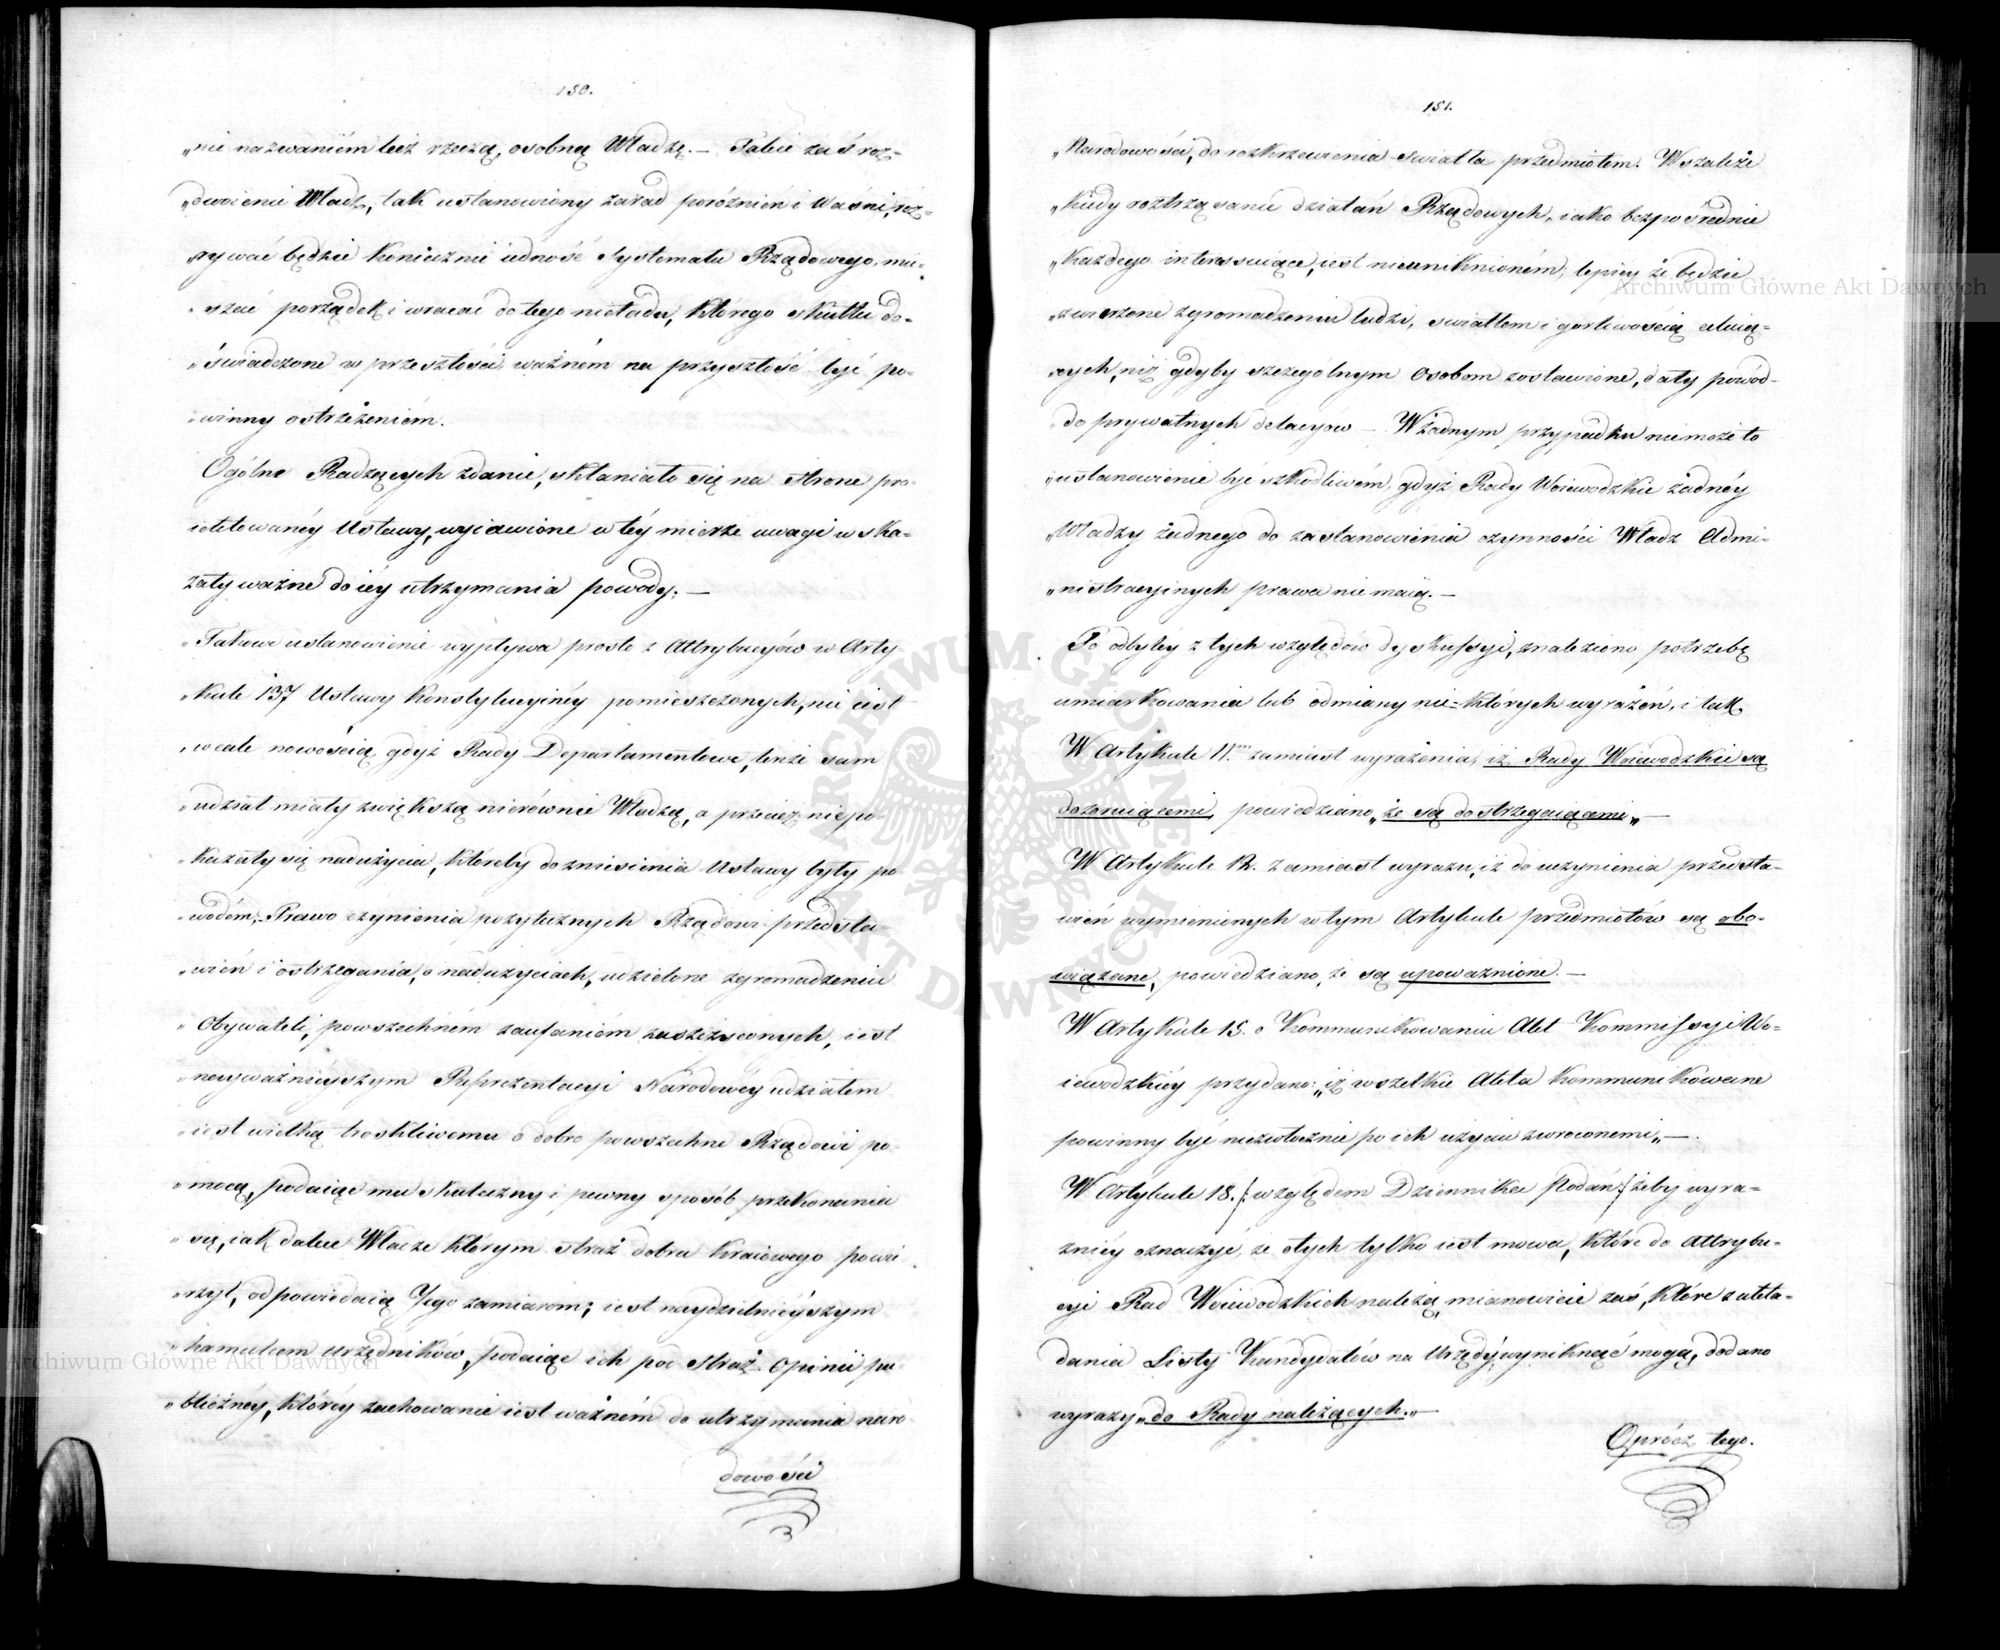 150.
„nie nazwaniém lecz rzeczą, osobną Władzę. — Takie zaś roz-
„dwoienie Władz, tak ustanowiony zaród poróżnień i waśni, roz-
„rywać będzie koniecznie iedność Systematu Rządowego, mie-
„szać porządek i wracać do tego nieładu, którego skutki do-
„świadczone w przeszłości, ważném na przyszłość być po-
„winny ostrzeżeniém.
Ogólne Radzących zdanie, skłaniało się na stronę pro-
iektowanéy Ustawy, wyiawione w téy mierze uwagi wska-
zały ważne do iéy utrzymania powody. —
„Takowe ustanowienie wypływa prosto z Attrybucyów w Arty-
„kule 137 Ustawy Konstytucyinéy pomieszczonych, nie iest
„wcale nowością gdyż Rady Departamentowe, tenże sam
„udział miały z większą nierównie Władzą, a przecież nie po-
„kazały się nadużycia, któreby do zniesienia Ustawy były po-
„wodém, Prawo czynienia pożytecznych Rządowi przedsta-
„wień i ostrzegania, o nadużyciach, udzielone zgromadzeniu
„Obywateli, powszechném zaufaniém zaszczyconych, iest
„nayważnieyszym Reprezentacyi Narodowéy udziałem
„iest wielką troskliwemu o dobro powszechne Rządowi po-
„mocą, podaiąc mu skuteczny i pewny sposób przekonania
„się, iak dalece Władze którym straż dobra kraiowego powie-
„rzył, odpowiedaią Jego zamiarom; iest naydzielnieyszym
„hamulcem Urzędników, podaiąc ich pod straż Opinii pu-
„bliczney, któréy zachowanie iest ważném do utrzymania naro-
dowości
151.
„Narodowości, do rozkrzewienia światła przedmiotem. Wszakże
„kiedy roztrząsanie działań Rządowych, iako bezpośrednie
„każdego interessuiące, iest nieuniknioném, lepiey że będzie
„zwierzone zgromadzeniu ludzi, światłem i gorliwością celuią-
„cych, niż gdyby szczególnym Osobom zostawione, dały powód
„do prywatnych delacyow — W żadnym przypadku nie może to
„ustanowienie być szkodliwém, gdyż Rady Woiewodzkie żadnéy
„Władzy żadnego do zastanowienia czynności Władz Admi-
„nistracyinych prawa nie maią. —
Po odbytéy z tych względów dyskussyi, znaleziono potrzebę
umiarkowania lub odmiany nie-których wyrażeń, i tak
W Artykule 11. zamiast wyrażenia, iż Rady Woiewodzkie są
dozoruiącemi, powiedziano, „że są dostrzegaiącemi„ —
W Artykule 12. zamiast wyrazu, iż do uczynienia przedsta-
wień wymienionych w tym Artykule przedmiotów są obo-
wiązane, powiedziano, że są upoważnione. —
W Artykule 15. o Kommunikowaniu Akt Kommissyi Wo-
iewodzkiéy przydano: „iż wszelkie Akta kommunikowane
powinny być niezwłocznie po ich użyciu zwroconemi„ —
W Artykule 18. /: względem Dziennika Podań :/ żeby wyra-
źniéy oznaczyć, że o tych tylko iest mowa, które do Attrybu-
cyi Rad Woiewodzkich należą, mianowicie zaś, które z ukła-
dania Listy Kandydatów na Urzędy, wyniknąć mogą, dodano
wyrazy „do Rady należących.„ —
Oprócz tego.
Archiwum Główne Akt Dawnych
Archiwum Główne Akt Dawnych
ARCHIWUM GŁÓWNE AKT DAWNYCH